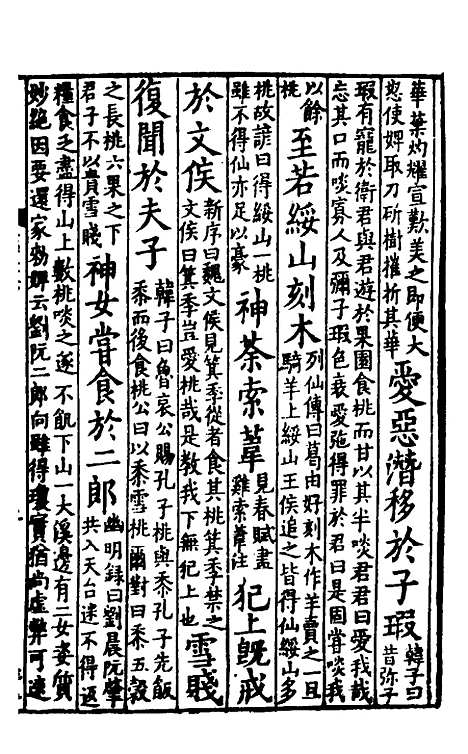 華葉灼耀宣歎美之即便大
怒使婢取刀斫樹摧折其華
愛惡潛移於子瑕
韓子曰
昔弥子
瑕有寵於衛君與君遊於果園食桃而甘以其半啖君君曰愛我哉
忘其口而啖寡人及彌子瑕色衰愛弛得罪於君曰是固嘗啖我
以餘
桃
至若綏山刻木
列仙傳曰葛由好刻木作羊賣之一旦
騎羊上綏山王侯追之皆得仙綏山多
桃故諺曰得綏山一桃
雖不得仙亦足以豪
神荼索葦
見春賦畫
雞索葦注
犯上旣戒
於文侯
新序曰魏文侯見箕季從者食其桃箕季禁之
文侯曰箕季豈愛桃哉是教我下無犯上也
雪賤
復聞於夫子
韓子曰魯哀公賜孔子桃與黍孔子先飯
黍而後食桃公曰以黍雪桃爾對曰黍五穀
之長桃六果之下
君子不以貴雪賤
神女嘗食於二郎
幽明録曰劉晨阮肇
共入天台迷不得返
糧食乏盡得山上數桃啖之遂不飢下山一大溪邊有二女姿質
妙絕因要還家勑婢云劉阮二郎向雖得瓊實猶尚虛弊可速